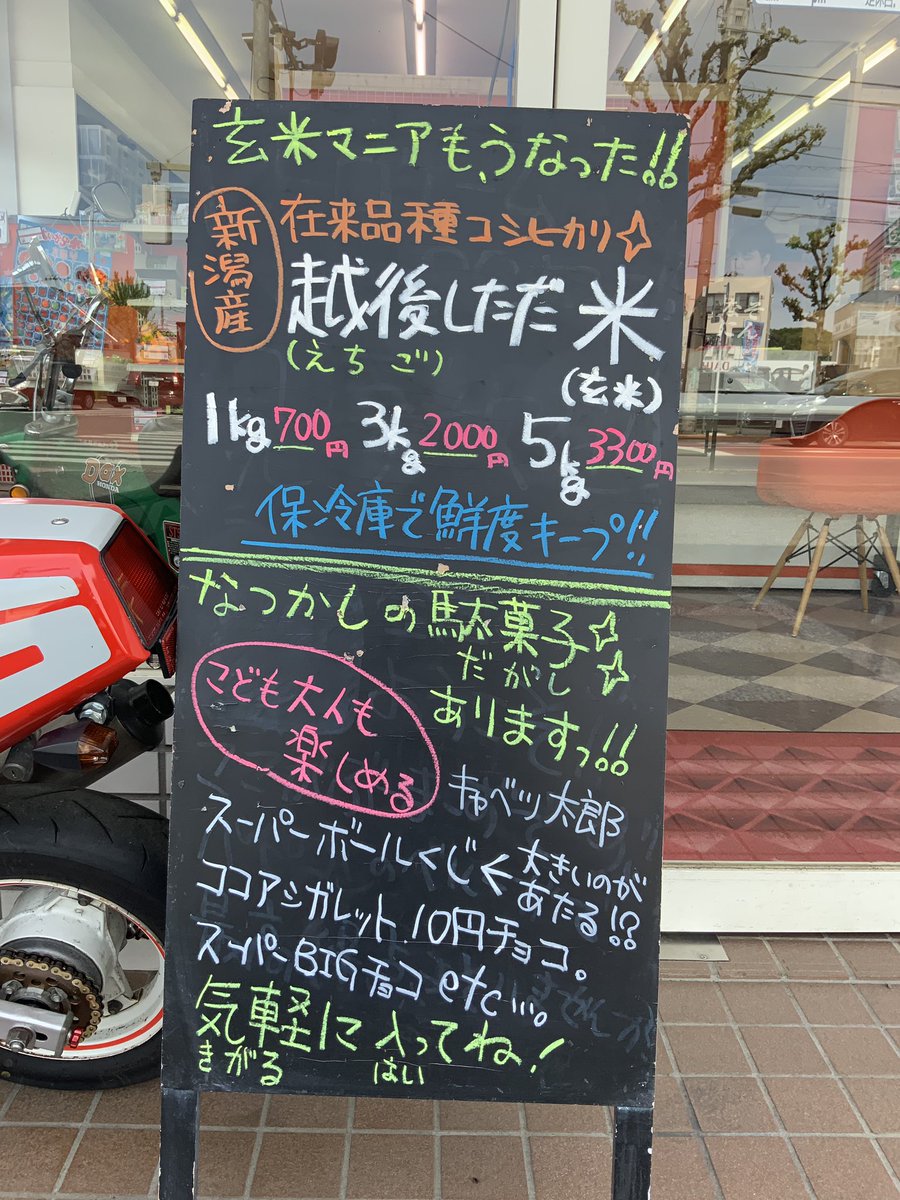 玄米マニアもうなった!!
新潟産
在来品種コシヒカリ☆
越後しただ米
(えちご)
(玄米)
1kg700円 3kg2000円 5kg3300円
保冷庫で鮮度キープ!!
なつかしの駄菓子
だがし
ありますっ!!
こども大人も
楽しめる
キャベツ太郎
スーパーボールくじ←大きいのが
あたる!?
ココアシガレット、10円チョコ。
スーパーBIGチョコ etc….
気軽に入ってね!
きがる はい
DAX
HONDA